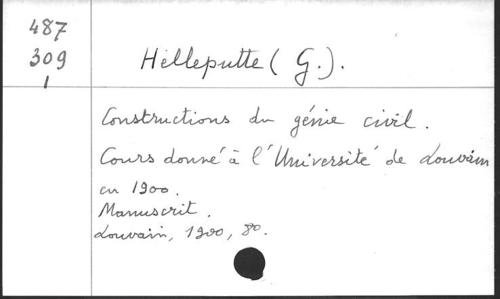 487
309
1
Helleputte (G.).
Constructions du génie civil.
Cours donné à l'Université de Louvain
en 1900.
Manuscrit.
Louvain, 1900, 8o.